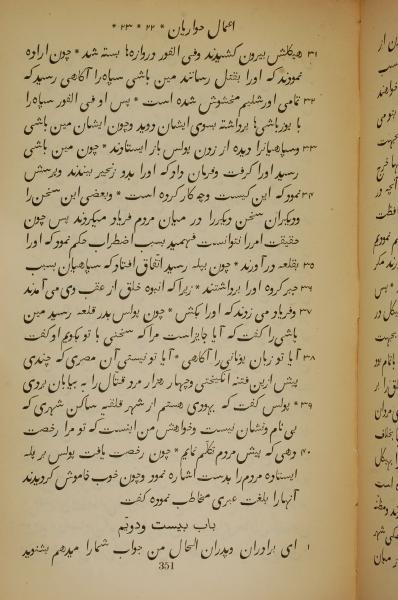 اعمال حواریان * ۲۲ * ۲۳ *
۳۱ هیکلش بیرون کشیدند وفی الفور دروازه‌ها بسته شد * چون اراده
نمودند که اورا بقتل رسانند مین باشی سپاه‌را آکاهی رسید که
۳۲ تمامی اورشلیم مغشوش شده است * پس او فی الفور سپاه‌را
با یوزباشی‌ها برداشته بسوی ایشان دوید وچون ایشان مین باشی
۳۳ وسپاهیانرا دیدند از زدن پولس باز ایستادند * چون مین باشی
رسید اورا کرفت وفرمان داد که اورا بدو زنجیر ببندند وپرسش
۳۴ نمود که این کیست وچه کار کرده است * وبعضی این سخن‌را
ودیکران سخن دیکررا در میان مردم فریاد میکردند پس چون
حقیقت امررا نتوانست فهمید بسبب اضطراب حکم نمود که اورا
۳۵ بقلعه در آوردند * چون بپله رسید اتفاق افتاد که سپاهیان بسبب
۳۶ جبر کروه اورا برداشتند * زیرا که انبوه خلق از عقب وی می آمدند
۳۷ وفریاد می زدند که اورا بکش * چون پولس بدر قلعه رسید مین
باشی‌را کفت که آیا جایز است مرا که سخنی با تو بکویم او کفت
۳۸ آیا تو زبان یونانی‌را آکاهی * آیا تو نیستی آن مصری که چندی
پیش ازین فتنه انکیختی وچهار هزار مرد قتال‌را به بیابان بردی
۳۹ * پولس کفت که یهودی هستم از شهر قلقیه ساکن شهری که
بی نام ونشان نیست وخواهش من اینست که تو مرا رخصت
۴۰ دهی که پیش مردم تکلم نمایم * چون رخصت یافت پولس بر پله
ایستاده مردم‌را بدست اشاره نمود وچون خوب خاموش کردیدند
آنهارا بلغت عبری مخاطب نموده کفت
باب بیست ودویم
۱ ای برادران وپدران الحال من جواب شمارا میدهم بشنوید
351